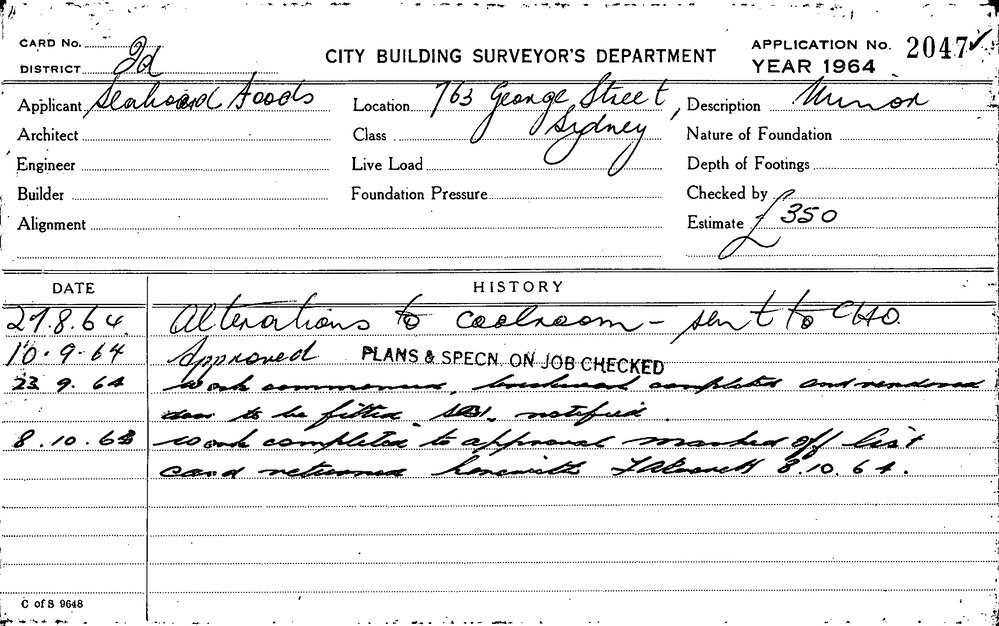 CARD No.
DISTRICT 2d
CITY BUILDING SURVEYOR'S DEPARTMENT
APPLICATION No. 2047 ✓
YEAR 1964
Applicant Seaboard Foods
Location 763 George Street, Sydney
Description Minor
Architect
Class
Nature of Foundation
Engineer
Live Load
Depth of Footings
Builder
Foundation Pressure
Checked by
Alignment
Estimate £350
DATE HISTORY
27.8.64 Alterations to coolroom - sent to CHO.
10.9.64 Approved PLANS & SPECN. ON JOB CHECKED
23.9.64 work commenced, brickwork completed and rendered
door to be fitted notified
8.10.64 work completed to approval marked off list
card returned herewith 8.10.64.
C of S 9648